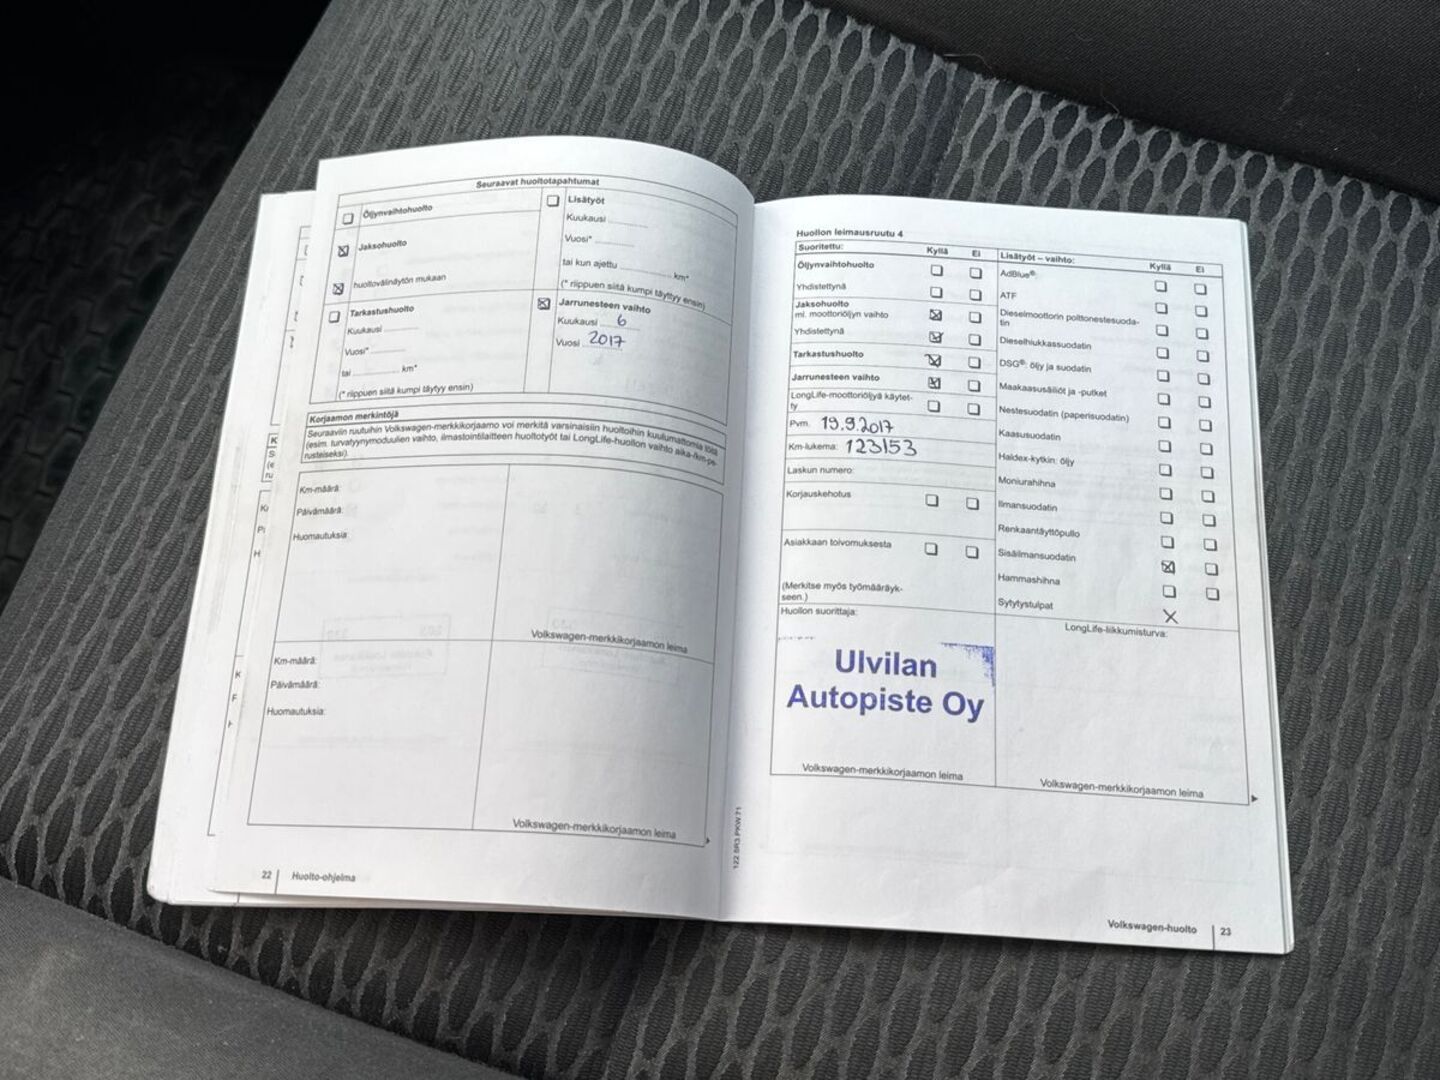 Seuraavat huoltotapahtumat
Öljynvaihtohuolto
Jaksohuolto
huoltovälinäytön mukaan
Tarkastushuolto
Kuukausi
Vuosi*
tai km*
(* riippuen siitä kumpi täytyy ensin)
Lisätyöt
Kuukausi
Vuosi*
tai kun ajettu km*
(* riippuen siitä kumpi täyttyy ensin)
Jarrunesteen vaihto
Kuukausi 6
Vuosi 2017
Korjaamon merkintöjä
Seuraaviin ruutuihin Volkswagen-merkkikorjaamo voi merkitä varsinaisiin huoltoihin kuulumattomia töitä
(esim. turvatyynymoduulien vaihto, ilmastointilaitteen huoltotyöt tai LongLife-huollon vaihto aika-/km-pe-
rusteiseksi).
Km-määrä:
Päivämäärä:
Huomautuksia:
Volkswagen-merkkikorjaamon leima
Km-määrä:
Päivämäärä:
Huomautuksia:
Volkswagen-merkkikorjaamon leima
22 Huolto-ohjelma
122.5R3.PKW.71
Huollon leimausruutu 4
Suoritettu: Kyllä Ei
Öljynvaihtohuolto
Yhdistettynä
Jaksohuolto
ml. moottoriöljyn vaihto
Yhdistettynä
Tarkastushuolto
Jarrunesteen vaihto
LongLife-moottoriöljyä käytet-
ty
Pvm. 19.9.2017
Km-lukema: 123153
Laskun numero:
Korjauskehotus
Asiakkaan toivomuksesta
(Merkitse myös työmääräyk-
seen.)
Huollon suorittaja:
Ulvilan
Autopiste Oy
Volkswagen-merkkikorjaamon leima
Lisätyöt – vaihto: Kyllä Ei
AdBlue®:
ATF
Dieselmoottorin polttonestesuoda-
tin
Dieselhiukkassuodatin
DSG®: öljy ja suodatin
Maakaasusäiliöt ja -putket
Nestesuodatin (paperisuodatin)
Kaasusuodatin
Haldex-kytkin: öljy
Moniurahihna
Ilmansuodatin
Renkaantäyttöpullo
Sisäilmansuodatin
Hammashihna
Sytytystulpat
LongLife-liikkumisturva:
Volkswagen-merkkikorjaamon leima
Volkswagen-huolto 23